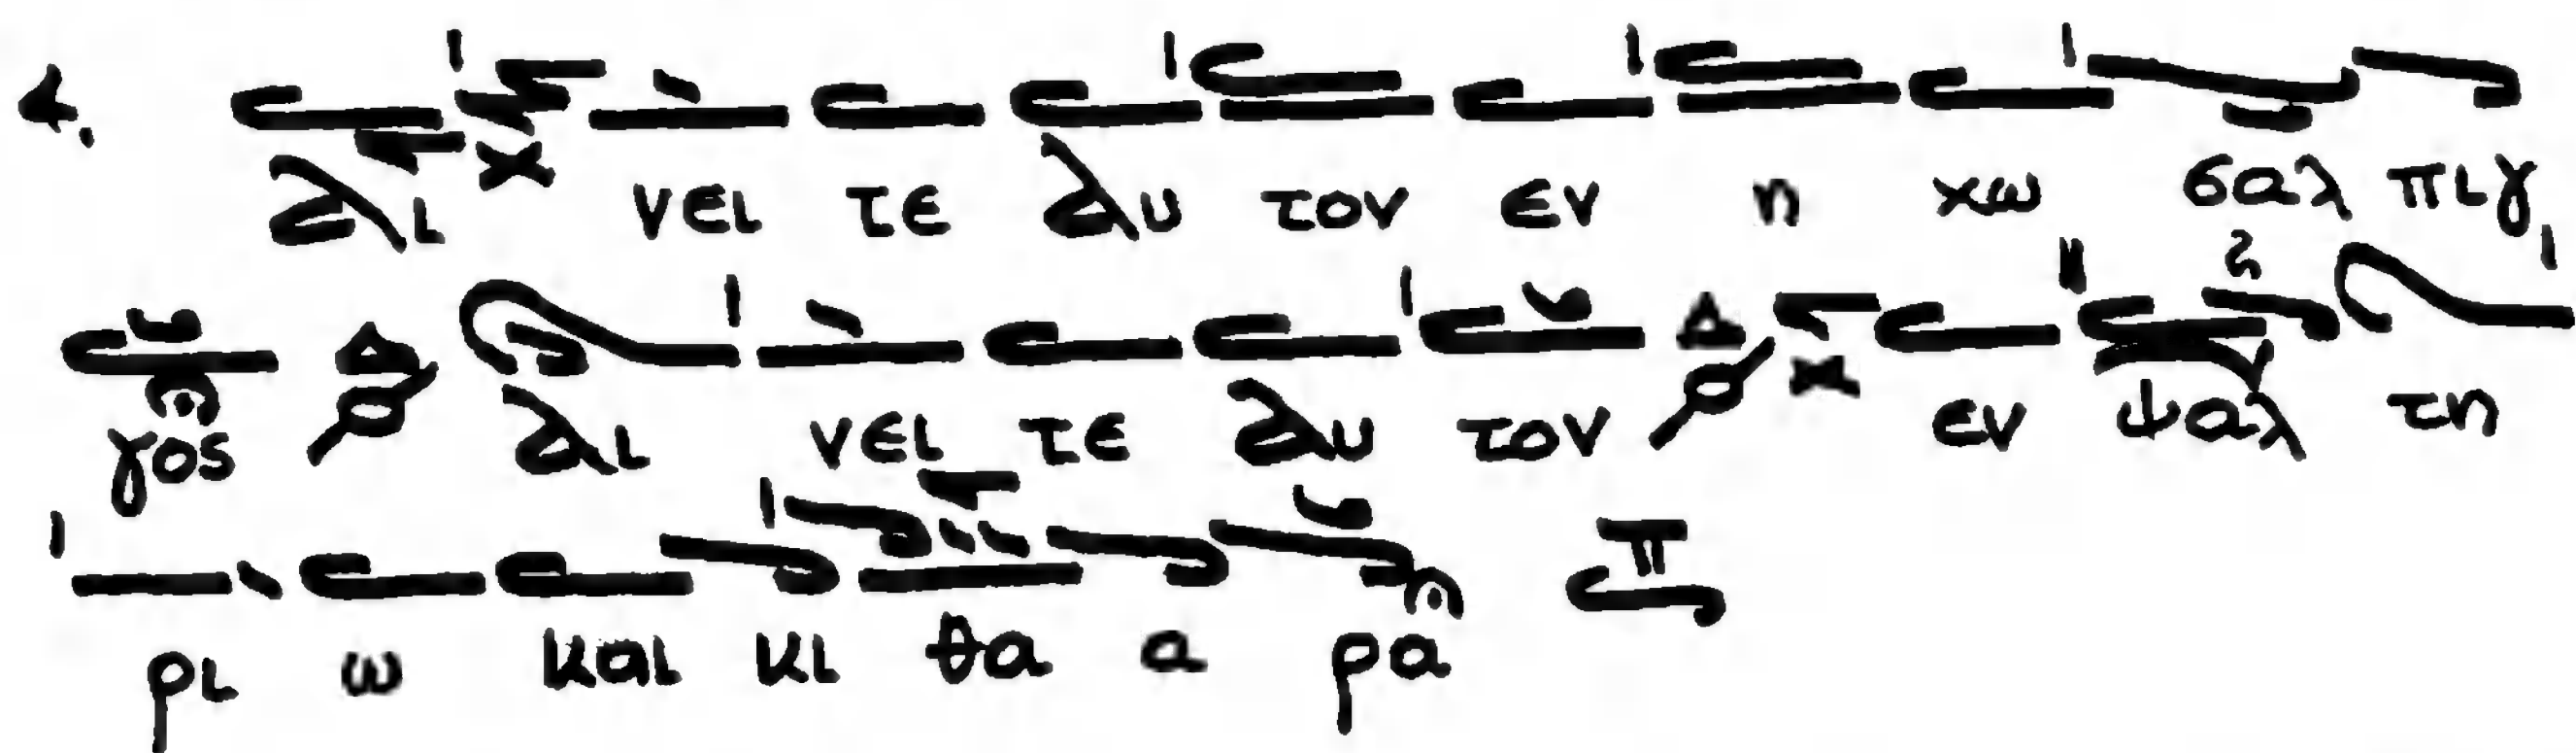 4. αι νει τε αυ τον εν η χω σαλ πιγ
γος Δ αι νει τε αυ τον Δ εν ψαλ τη
ρι ω και κι θα α ρα π